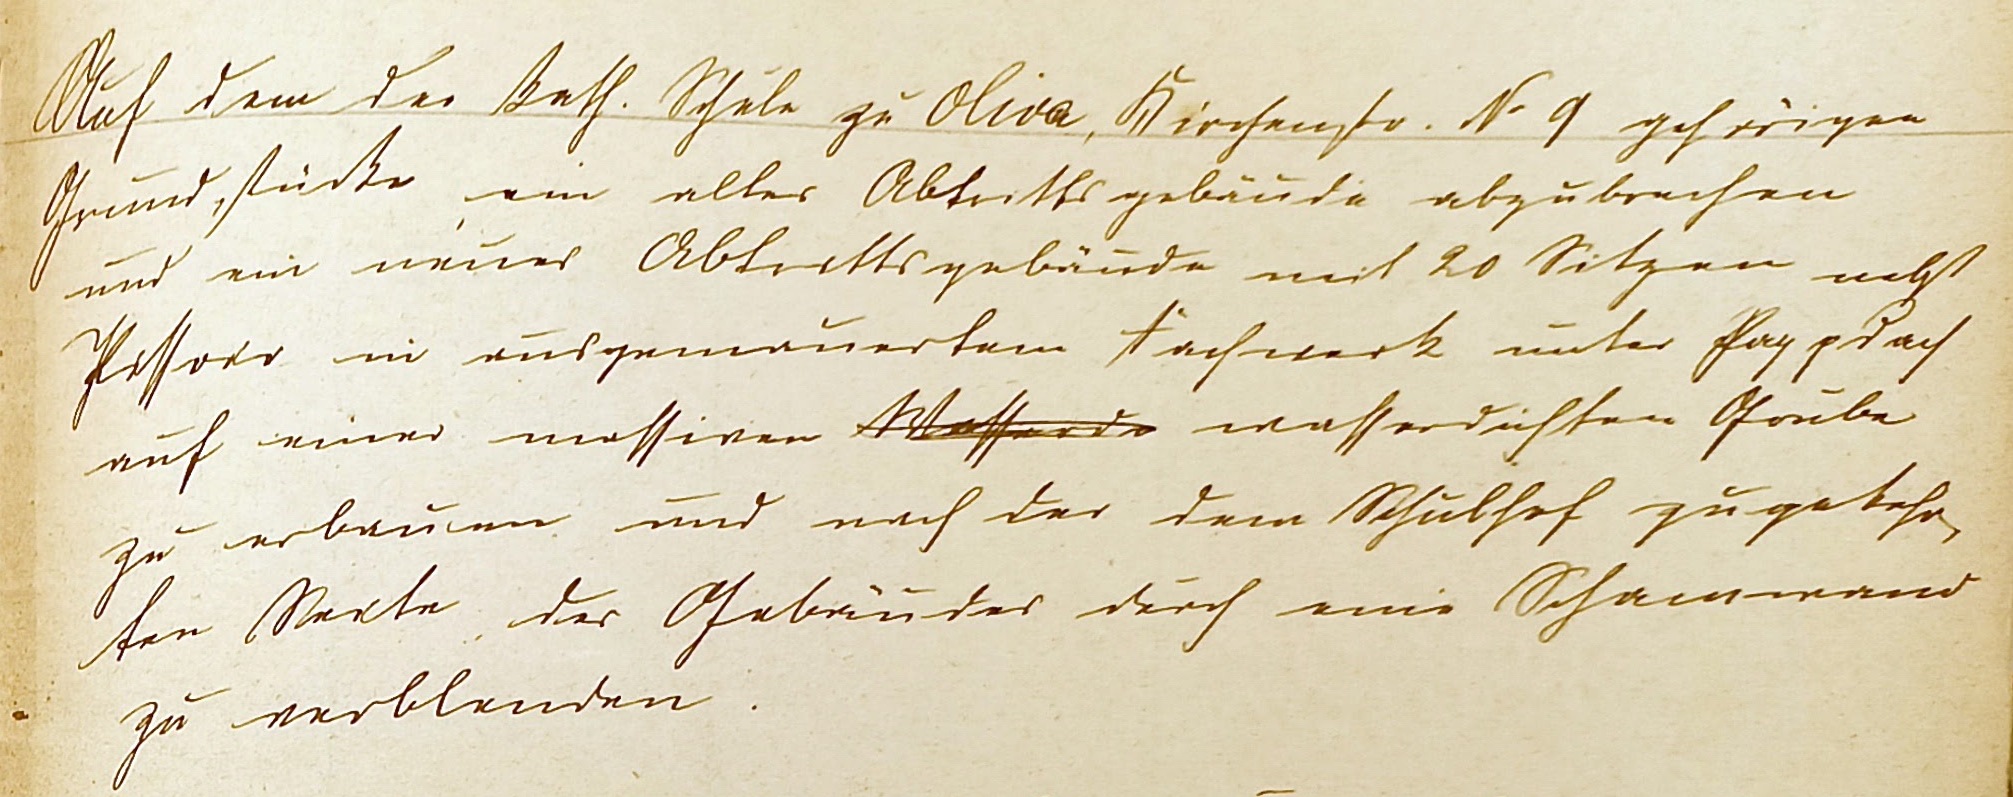 Auf dem der kath. Schule zu Oliva, Kirchenstr. № 9 gehörigen
Grundstücke ein altes Abtrittsgebäude abzubrechen
und ein neues Abtrittsgebäude mit 20 Sitzen nebst
Pissoir in ausgemauertem Fachwerk unter Pappdach
auf einer massiven Wasserd wasserdichten Grube
zu erbauen und nach der dem Schulhof zugekehr-
ten Seite des Gebäudes durch eine Schamwand
zu verblenden.